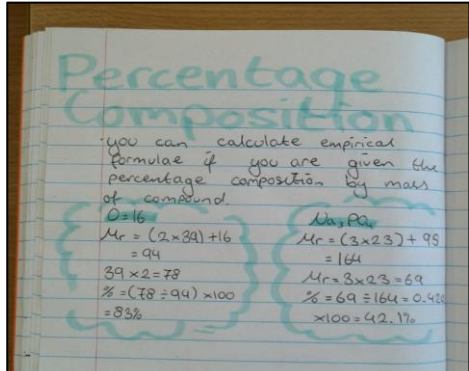 Percentage
Composition
· you can calculate empirical
formulae if you are given the
percentage composition by mass
of compound.
O=16
Mr = (2×39)+16
= 94
39 × 2 = 78
% = (78 ÷ 94) ×100
= 83%
Na₃PO₄
Mr = (3×23) + 95
= 164
Mr = 3×23 = 69
% = 69 ÷ 164 = 0.420
×100 = 42.1%